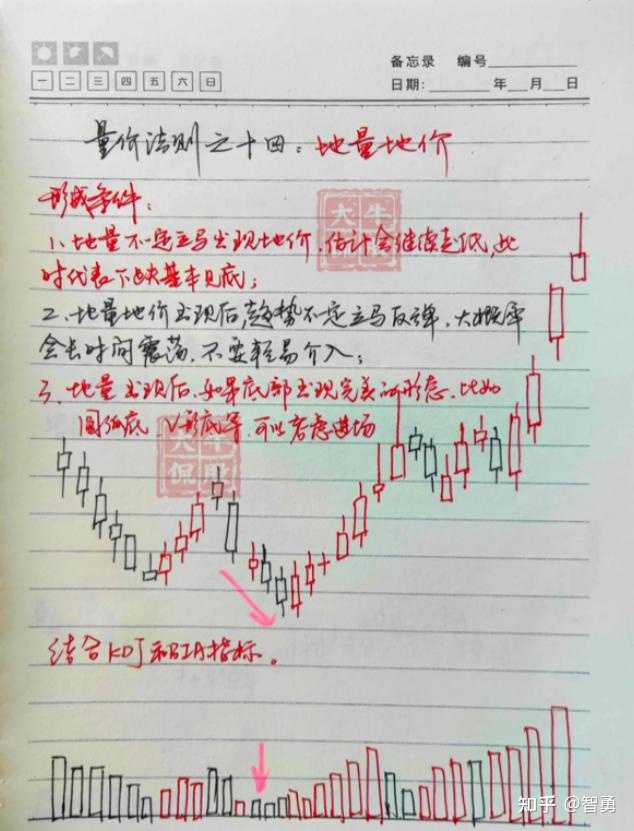 备忘录 编号
一 二 三 四 五 六 日
日期: 年 月 日
量价法则之十四：地量地价
形成条件：
1、地量不一定立马出现地价，估计会继续走低，此
时代表下跌基本见底；
2、地量地价出现后，趋势不一定立马反弹，大概率
会长时间震荡，不要轻易介入；
3、地量出现后，如果底部出现完美的形态，比如
圆弧底、V形底等，可以考虑进场
大牛
侃股
大牛
侃股
结合KDJ和BIA指标。
知乎 @智勇